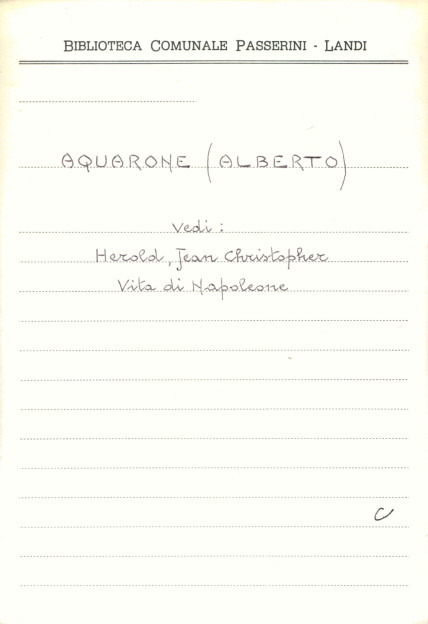 BIBLIOTECA COMUNALE PASSERINI - LANDI
AQUARONE (ALBERTO)
Vedi :
Herold, Jean Christopher
Vita di Napoleone
C